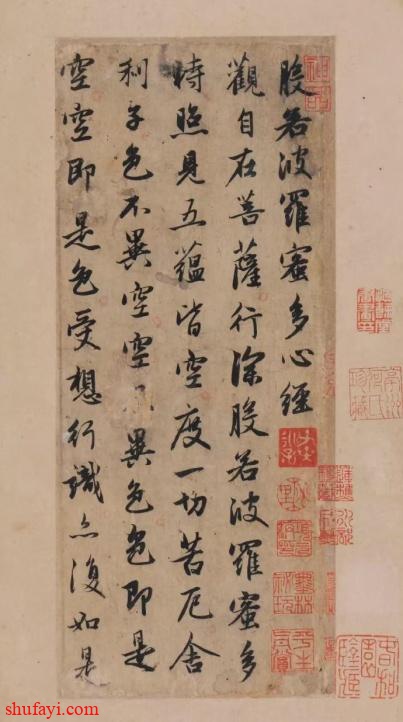 般若波羅蜜多心經
觀自在菩薩行深般若波羅蜜多
時照見五蘊皆空度一切苦厄舍
利子色不異空空不異色色即是
空空即是色受想行識亦復如是
shufayi.com